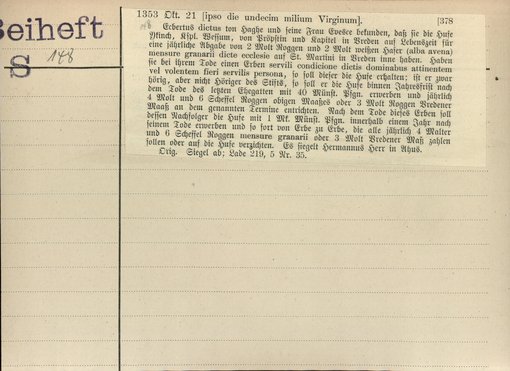 Beiheft
S 148
1353 Okt. 21 [ipso die undecim milium Virginum]. [378
Ecbertus dictus ton Haghe und seine Frau Eveske bekunden, daß sie die Hufe
Yfinch, Kspl. Wessum, von Pröpstin und Kapitel in Vreden auf Lebenszeit für
eine jährliche Abgabe von 2 Molt Roggen und 2 Molt weißen Hafer (alba avena)
mensure granarii dicte ecclesie auf St. Martini in Vreden inne haben. Haben
sie bei ihrem Tode einen Erben servili condicione dictis dominabus attinentem
vel volentem fieri servilis persona, so soll dieser die Hufe erhalten; ist er zwar
hörig, aber nicht Höriger des Stifts, so soll er die Hufe binnen Jahresfrist nach
dem Tode des letzten Ehegatten mit 40 Münst. Pfgn. erwerben und jährlich
4 Molt und 6 Scheffel Roggen obigen Maaßes oder 3 Molt Roggen Vredener
Maaß an dem genannten Termine entrichten. Nach dem Tode dieses Erben soll
dessen Nachfolger die Hufe mit 1 Mk. Münst. Pfgn. innerhalb einem Jahr nach
seinem Tode erwerben und so fort von Erbe zu Erbe, die alle jährlich 4 Malter
und 6 Scheffel Roggen mensure granarii oder 3 Molt Vredener Maß zahlen
sollen oder auf die Hufe verzichten. Es siegelt Hermannus Herr in Ahus.
Orig. Siegel ab; Lade 219, 5 Nr. 35.